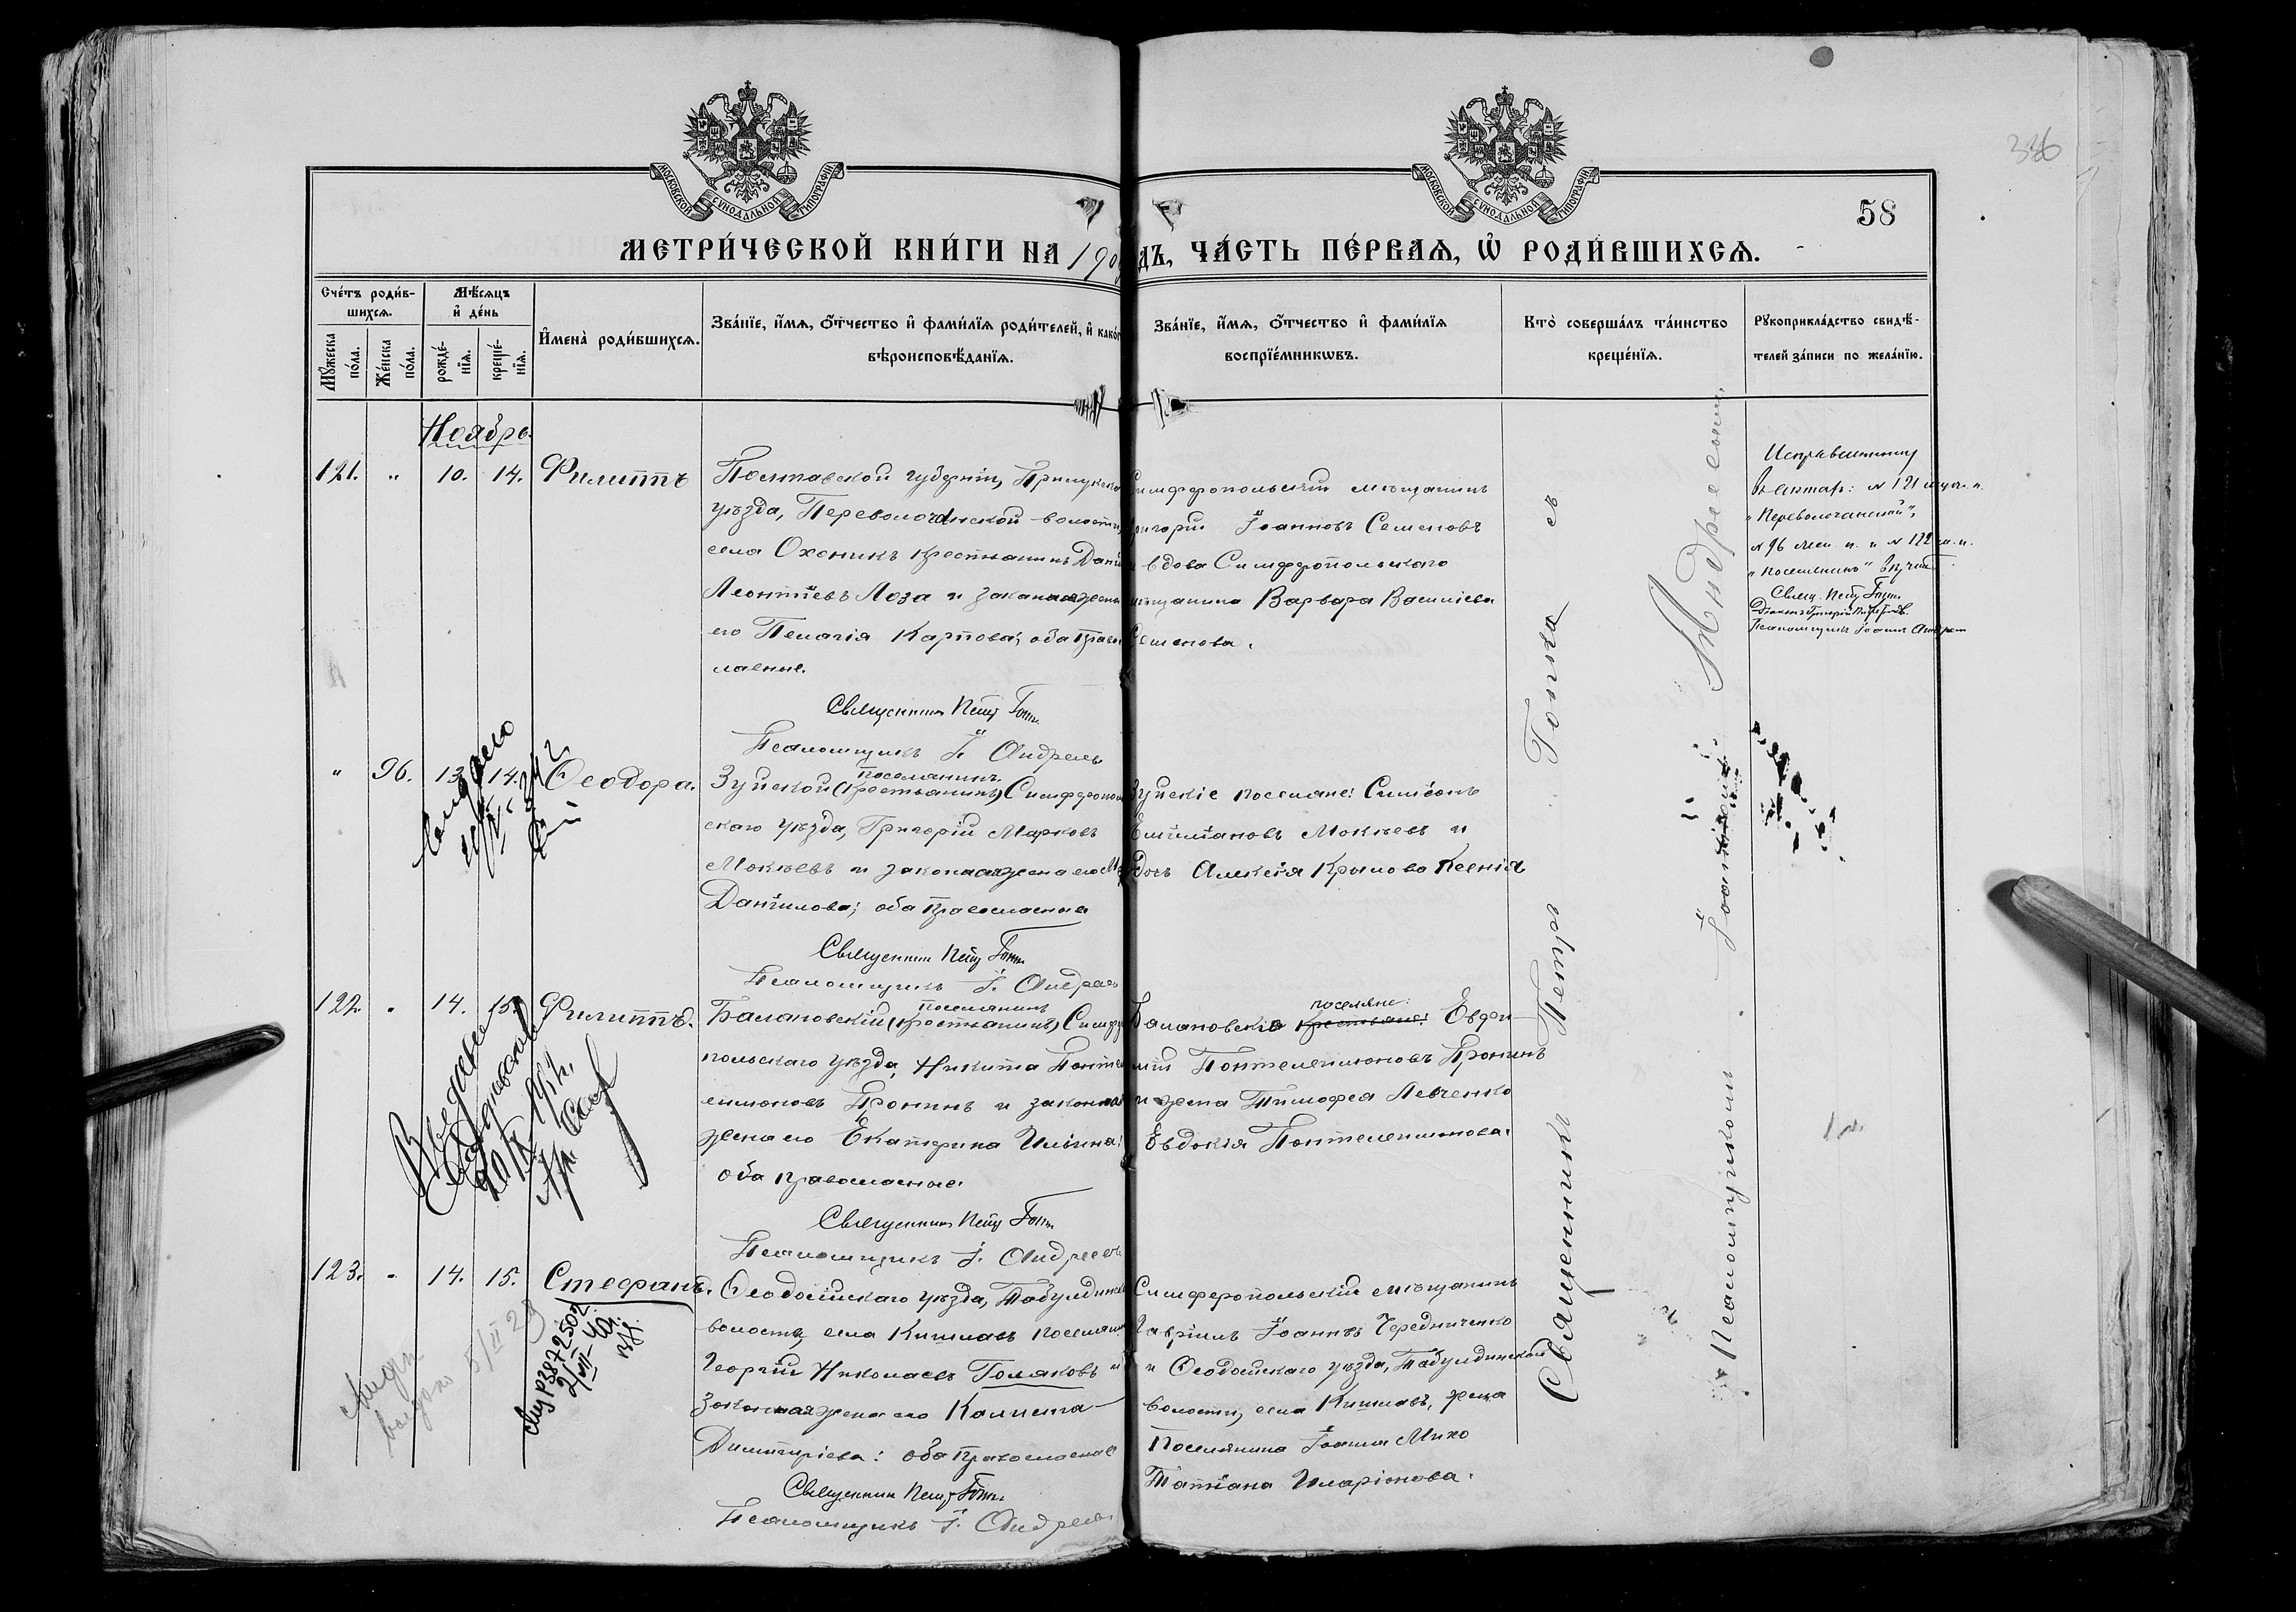 336
МОСКОВСКОЙ СѴНОДАЛЬНОЙ ТИПОГРАФІИ
МОСКОВСКОЙ СѴНОДАЛЬНОЙ ТИПОГРАФІИ
58
МЕТРИ́ЧЕСКОЙ КНИ́ГИ НА 190
ДЪ, ЧА́СТЬ ПЕ́РВАѦ, Ѡ҆ РОДИ́ВШИХСѦ.
Сче́тъ роди́в-
шихсѧ.
Мꙋ́жеска по́ла.
Же́нска по́ла.
Мѣ́сѧцъ
и҆ де́нь
рожде́-
нїѧ.
креще́-
нїѧ.
И҆мена̀ роди́вшихсѧ.
Зва́нїе, и҆́мѧ, ѻ҆́тчество и҆ фами́лїѧ роди́телей, и҆ како́г
вѣроисповѣ́данїѧ.
Зва́нїе, и҆́мѧ, ѻ҆́тчество и҆ фами́лїѧ
воспрїе́мникѡвъ.
Кто̀ соверша́лъ та́инство
креще́нїѧ.
Рꙋкоприкла́дство свидѣ́-
телей за́писи по жела́нїю.
Ноябрь.
121. " 10. 14. Филиппъ
Полтавской губерніи, Прилукска
уѣзда, Переволочанской волости,
села Охонникъ крестьянинъ Дані
Леонтіевъ Лоза и законная жена
его Пелагія Карпова; оба право
славные.
Священникъ Петръ
Псаломщикъ І. Андреевъ
Симферопольскій мѣщанинъ
ригорій Іоанновъ Семеновъ
и вдова Симферопольскаго
мѣщанина Варвара Василіева
Семенова.
Исправленному
въ актахъ: № 121 муж. п.
"Переволочанской",
№ 96 жен. п. и № 122 м. п.
"поселянинъ" вѣрить.
Свящ. Петръ
Псаломщикъ Іоаннъ Андреевъ
" 96. 13. 14. Ѳеодора.
поселянинъ
Зуйской (крестьянинъ) Симферополь
скаго уѣзда, Григорій Марковъ
Мокѣевъ и законная жена его
Даніилова; оба православные
Священникъ Петръ
Псаломщикъ І. Андреевъ
Зуйскіе поселяне: Симеонъ
Емиліановъ Мокѣевъ и
дочь Алексія Крылова Ксенія
122. " 14. 15. Филиппъ.
поселянинъ
Балановскій (крестьянинъ) Симфер
польскаго уѣзда, Никита Панте
леимоновъ Пронинъ и законная
жена его Екатерина Ильина;
оба православные.
Священникъ Петръ
Псаломщикъ І. Андреевъ
поселяне:
Балановскіе крестьяне: Евфи-
мій Пантелеимоновъ Пронинъ
и жена Тимофея Левченко
Евдокія Пантелеимонова.
20/IX 1914 г.
123. " 14. 15. Стефанъ.
Ѳеодосійскаго уѣзда, Табулдинск
волости, села Кишлавъ поселянин
Георгій Николаевъ Поляковъ и
законная жена его Каллиста
Димитріева: оба православные
Священникъ Петръ
Псаломщикъ І. Андреевъ
Симферопольскій мѣщанинъ
Гавріилъ Іоанновъ Чередниченко
и Ѳеодосійскаго уѣзда, Табулдинской
волости, села Кишлавъ, жена
поселянина Іоанна Михо
Татіана Иларіонова.
5/II 23
Священникъ Петръ съ
Псаломщикомъ Іоанномъ Андреевымъ